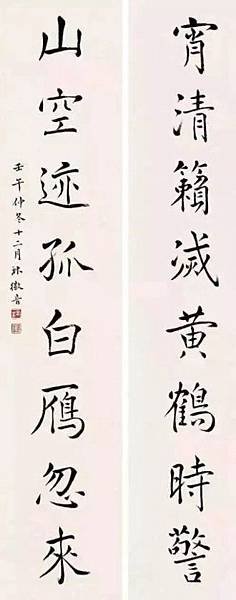 宵清籟滅黄鶴時警
山空迹孤白雁忽來
壬午仲冬十二月林徽音